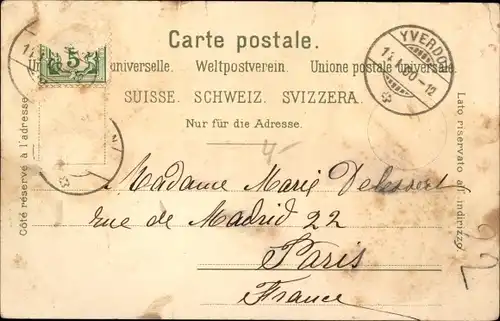 Carte postale.
Union postale universelle. Weltpostverein. Unione postale universale.
SUISSE. SCHWEIZ. SVIZZERA.
Nur für die Adresse.
5
YVERDON
Côté réservé à l'adresse.
Lato riservato all' indirizzo.
Madame Marie Delessert
rue de Madrid 22
Paris
France
22